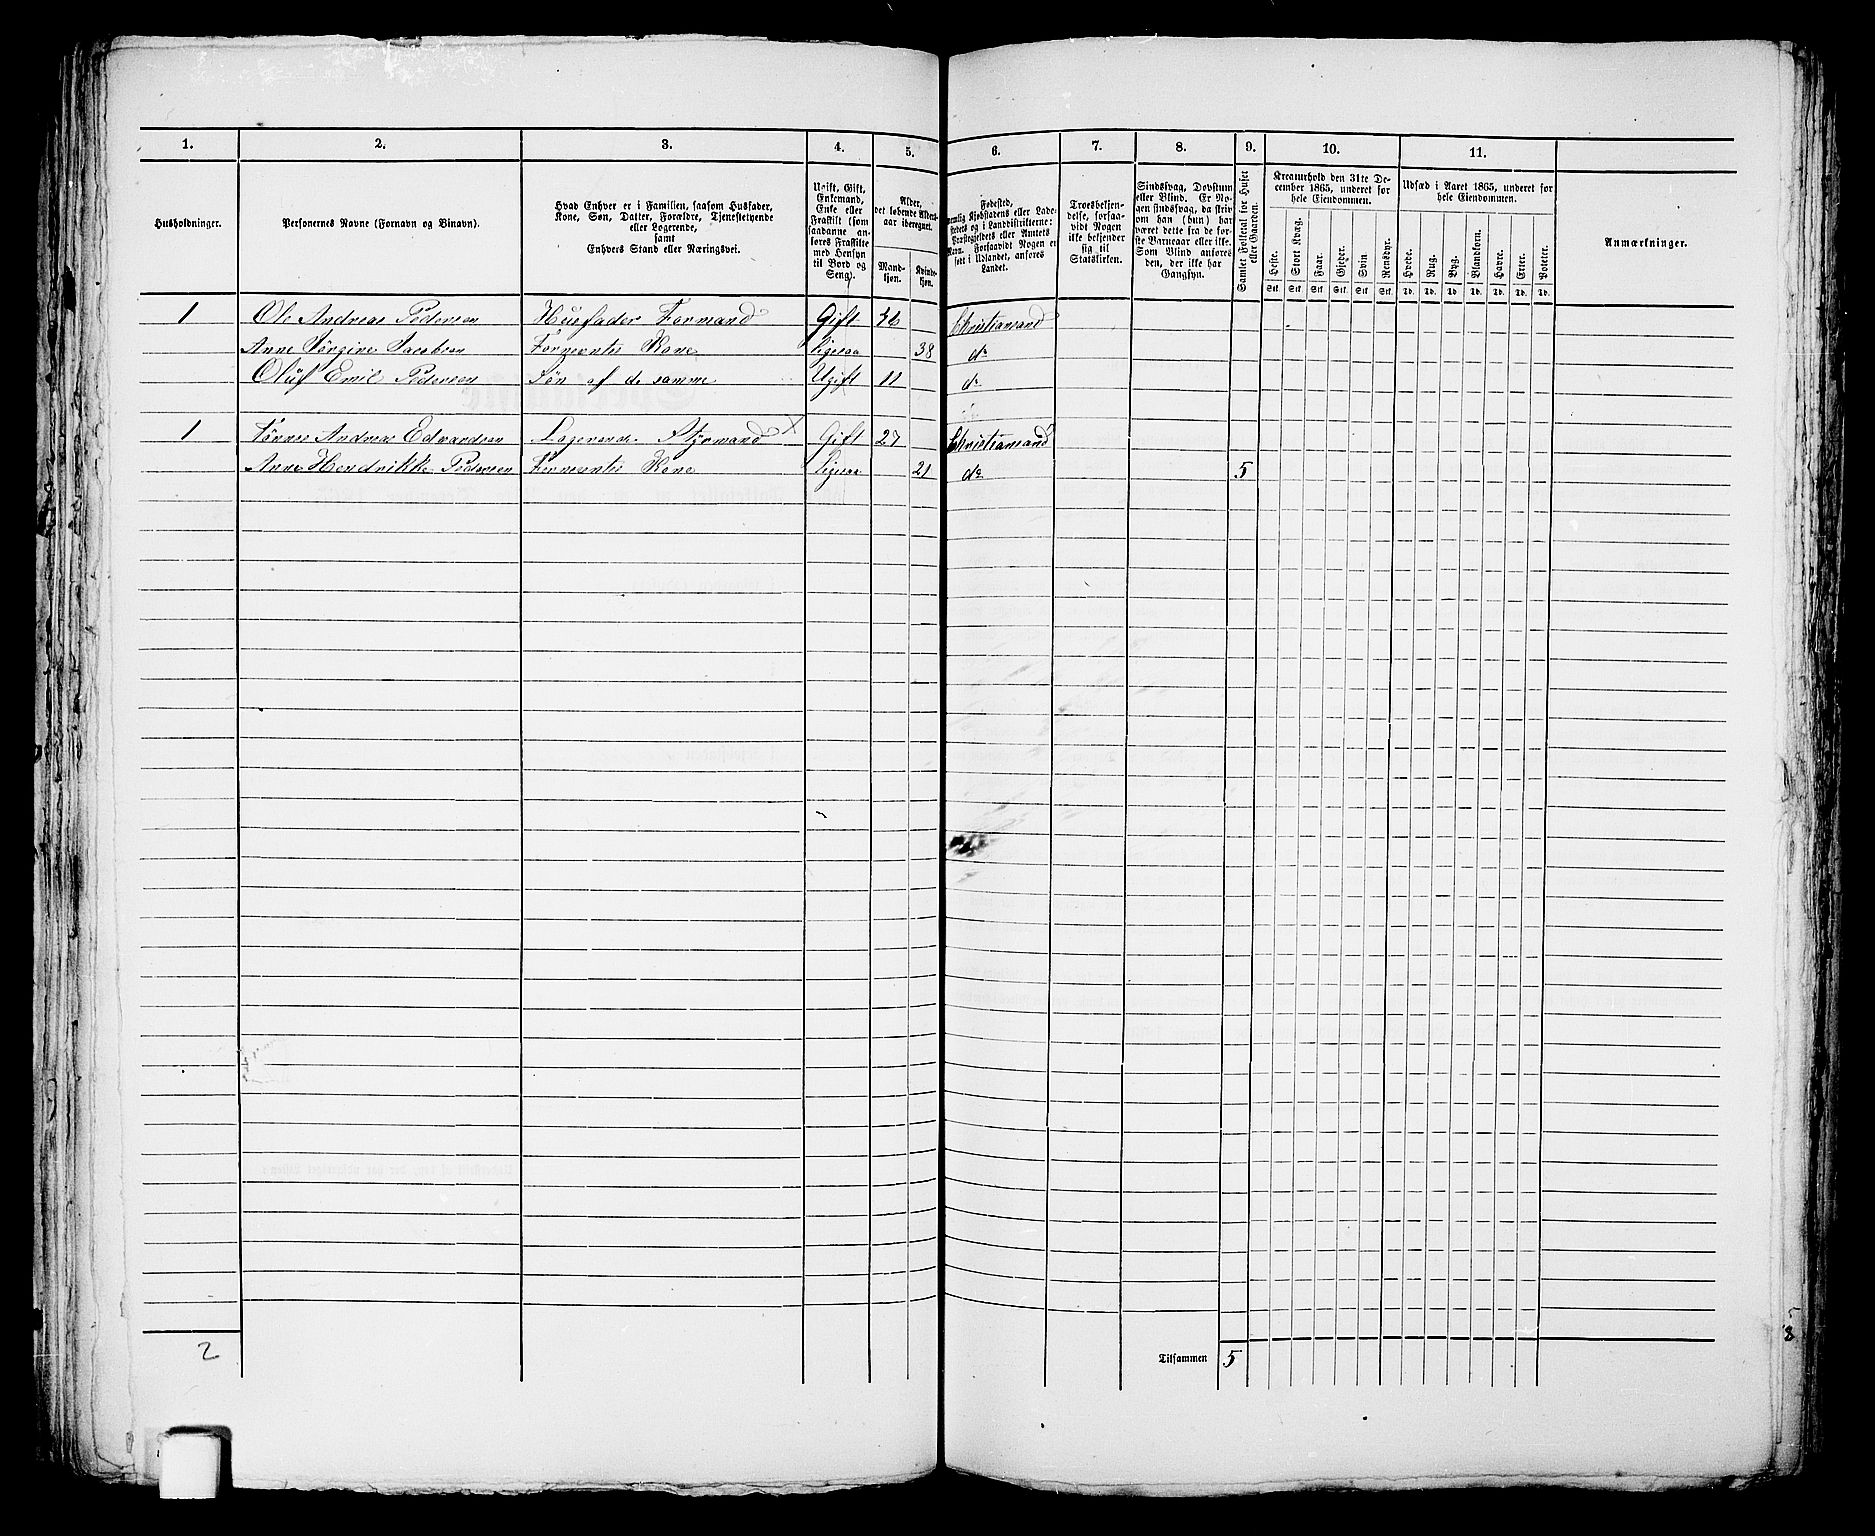 1. 2. 3. 4. 5. 6. 7. 8. 9. 10. 11.
Husholdninger.
Personernes Navne (Fornavn og Binavn).
Hvad Enhver er i Familien, saasom Husfader,
Kone, Søn, Datter, Forældre, Tjenestetyende
eller Logerende,
samt
Enhvers Stand eller Næringsvei.
Ugift, Gift,
Enkemand,
Enke eller
Fraskilt (som
saadanne an-
føres Fraskilte
med Hensyn
til Bord og
Seng).
Alder,
det løbende Alders-
aar iberegnet.
Mand-
kjøn.
Kvinde-
kjøn.
Fødested,
nemlig Kjøbstadens eller Lade-
stedets og i Landdistrikterne:
Præstegjeldets eller Amtets
Navn. Forsaavidt Nogen er
født i Udlandet, anføres
Landet.
Troesbekjen-
delse, forsaa-
vidt Nogen
ikke bekjender
sig til
Statskirken.
Sindssvag, Døvstum
eller Blind. Er No-
gen sindssvag, da skriv
om han (hun) har
været dette fra de før-
ste Barneaar eller ikke.
Som Blind anføres
den, der ikke har
Gangsyn.
Samlet Folketal for Huset
eller Gaarden.
Kreaturhold den 31te De-
cember 1865, underet for
hele Eiendommen.
Heste. Stort Kvæg. Faar. Gjeder. Svin Rensdyr.
Stk. Stk. Stk. Stk. Stk. Stk.
Udsæd i Aaret 1865, underet for
hele Eiendommen.
Hvede. Rug. Byg. Blandkorn. Havre. Erter. Poteter.
Td. Td. Td. Td. Td. Td. Td.
Anmærkninger.
1 Ole Andreas Pedersen Husfader Formand Gift 36 Christiansand
Anne Jørgine Jacobsen Førnævntes Kone Ligesaa 38 do
Oluf Emil Pedersen Søn af de samme Ugift 11 do
1 Tønnes Andreas Edvardsen Logerende Styrmand X Gift 27 Christiansand
Anne Hendrikke Pedersen Førnævntes Kone Ligesaa 21 do 5
2 Tilsammen 5